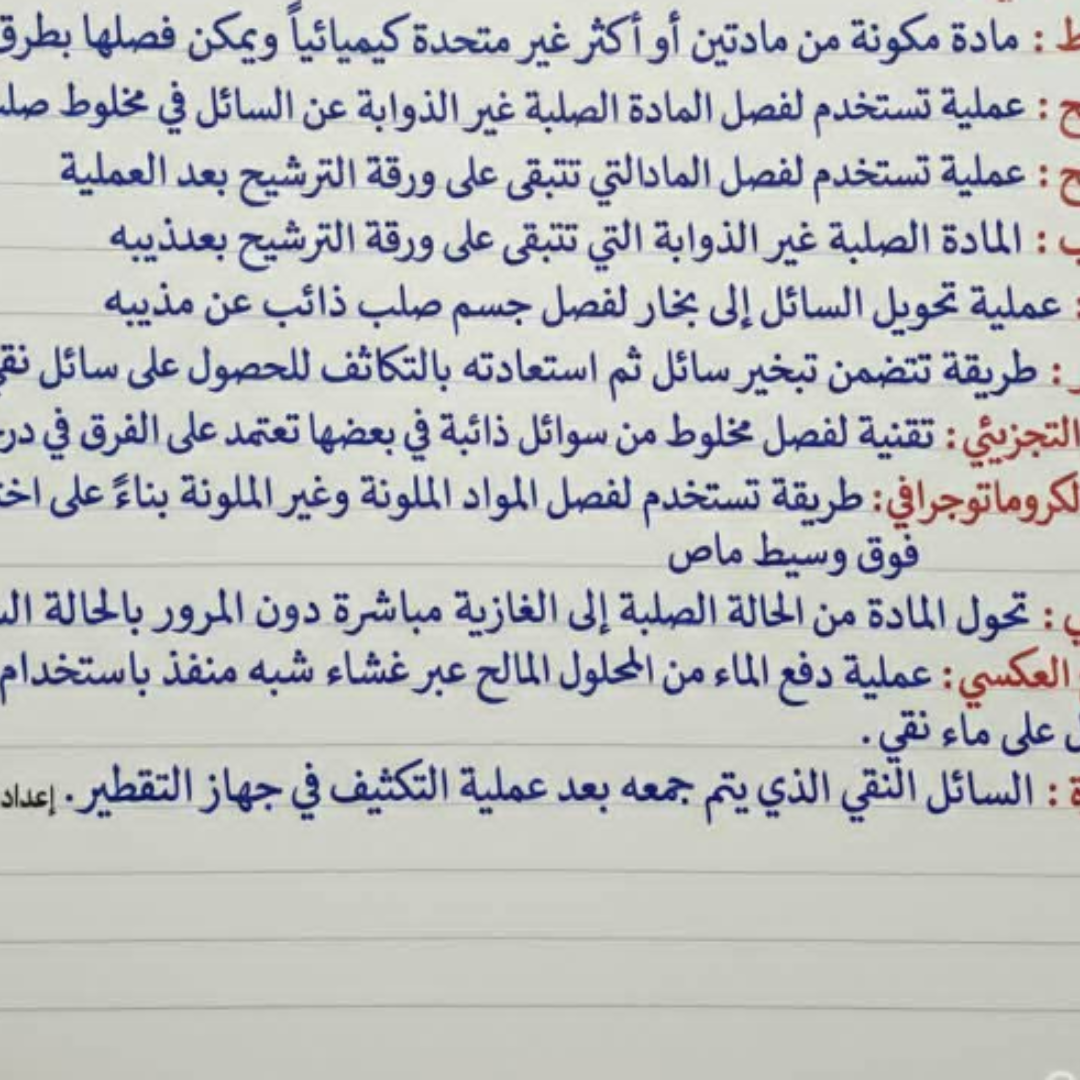 ط : مادة مكونة من مادتين أو أكثر غير متحدة كيميائياً ويمكن فصلها بطرق
ح : عملية تستخدم لفصل المادة الصلبة غير الذوابة عن السائل في مخلوط صلب
ح : عملية تستخدم لفصل المادالتي تتبقى على ورقة الترشيح بعد العملية
ب : المادة الصلبة غير الذوابة التي تتبقى على ورقة الترشيح بعدذيبه
: عملية تحويل السائل إلى بخار لفصل جسم صلب ذائب عن مذيبه
ر : طريقة تتضمن تبخير سائل ثم استعادته بالتكاثف للحصول على سائل نقي
التجزيئي : تقنية لفصل مخلوط من سوائل ذائبة في بعضها تعتمد على الفرق في در
لكروماتوجرافي: طريقة تستخدم لفصل المواد الملونة وغير الملونة بناءً على اخ
فوق وسيط ماص
ي : تحول المادة من الحالة الصلبة إلى الغازية مباشرة دون المرور بالحالة الس
العكسي : عملية دفع الماء من المحلول المالح عبر غشاء شبه منفذ باستخدام
ل على ماء نقي .
ة : السائل النقي الذي يتم جمعه بعد عملية التكثيف في جهاز التقطير . إعداد